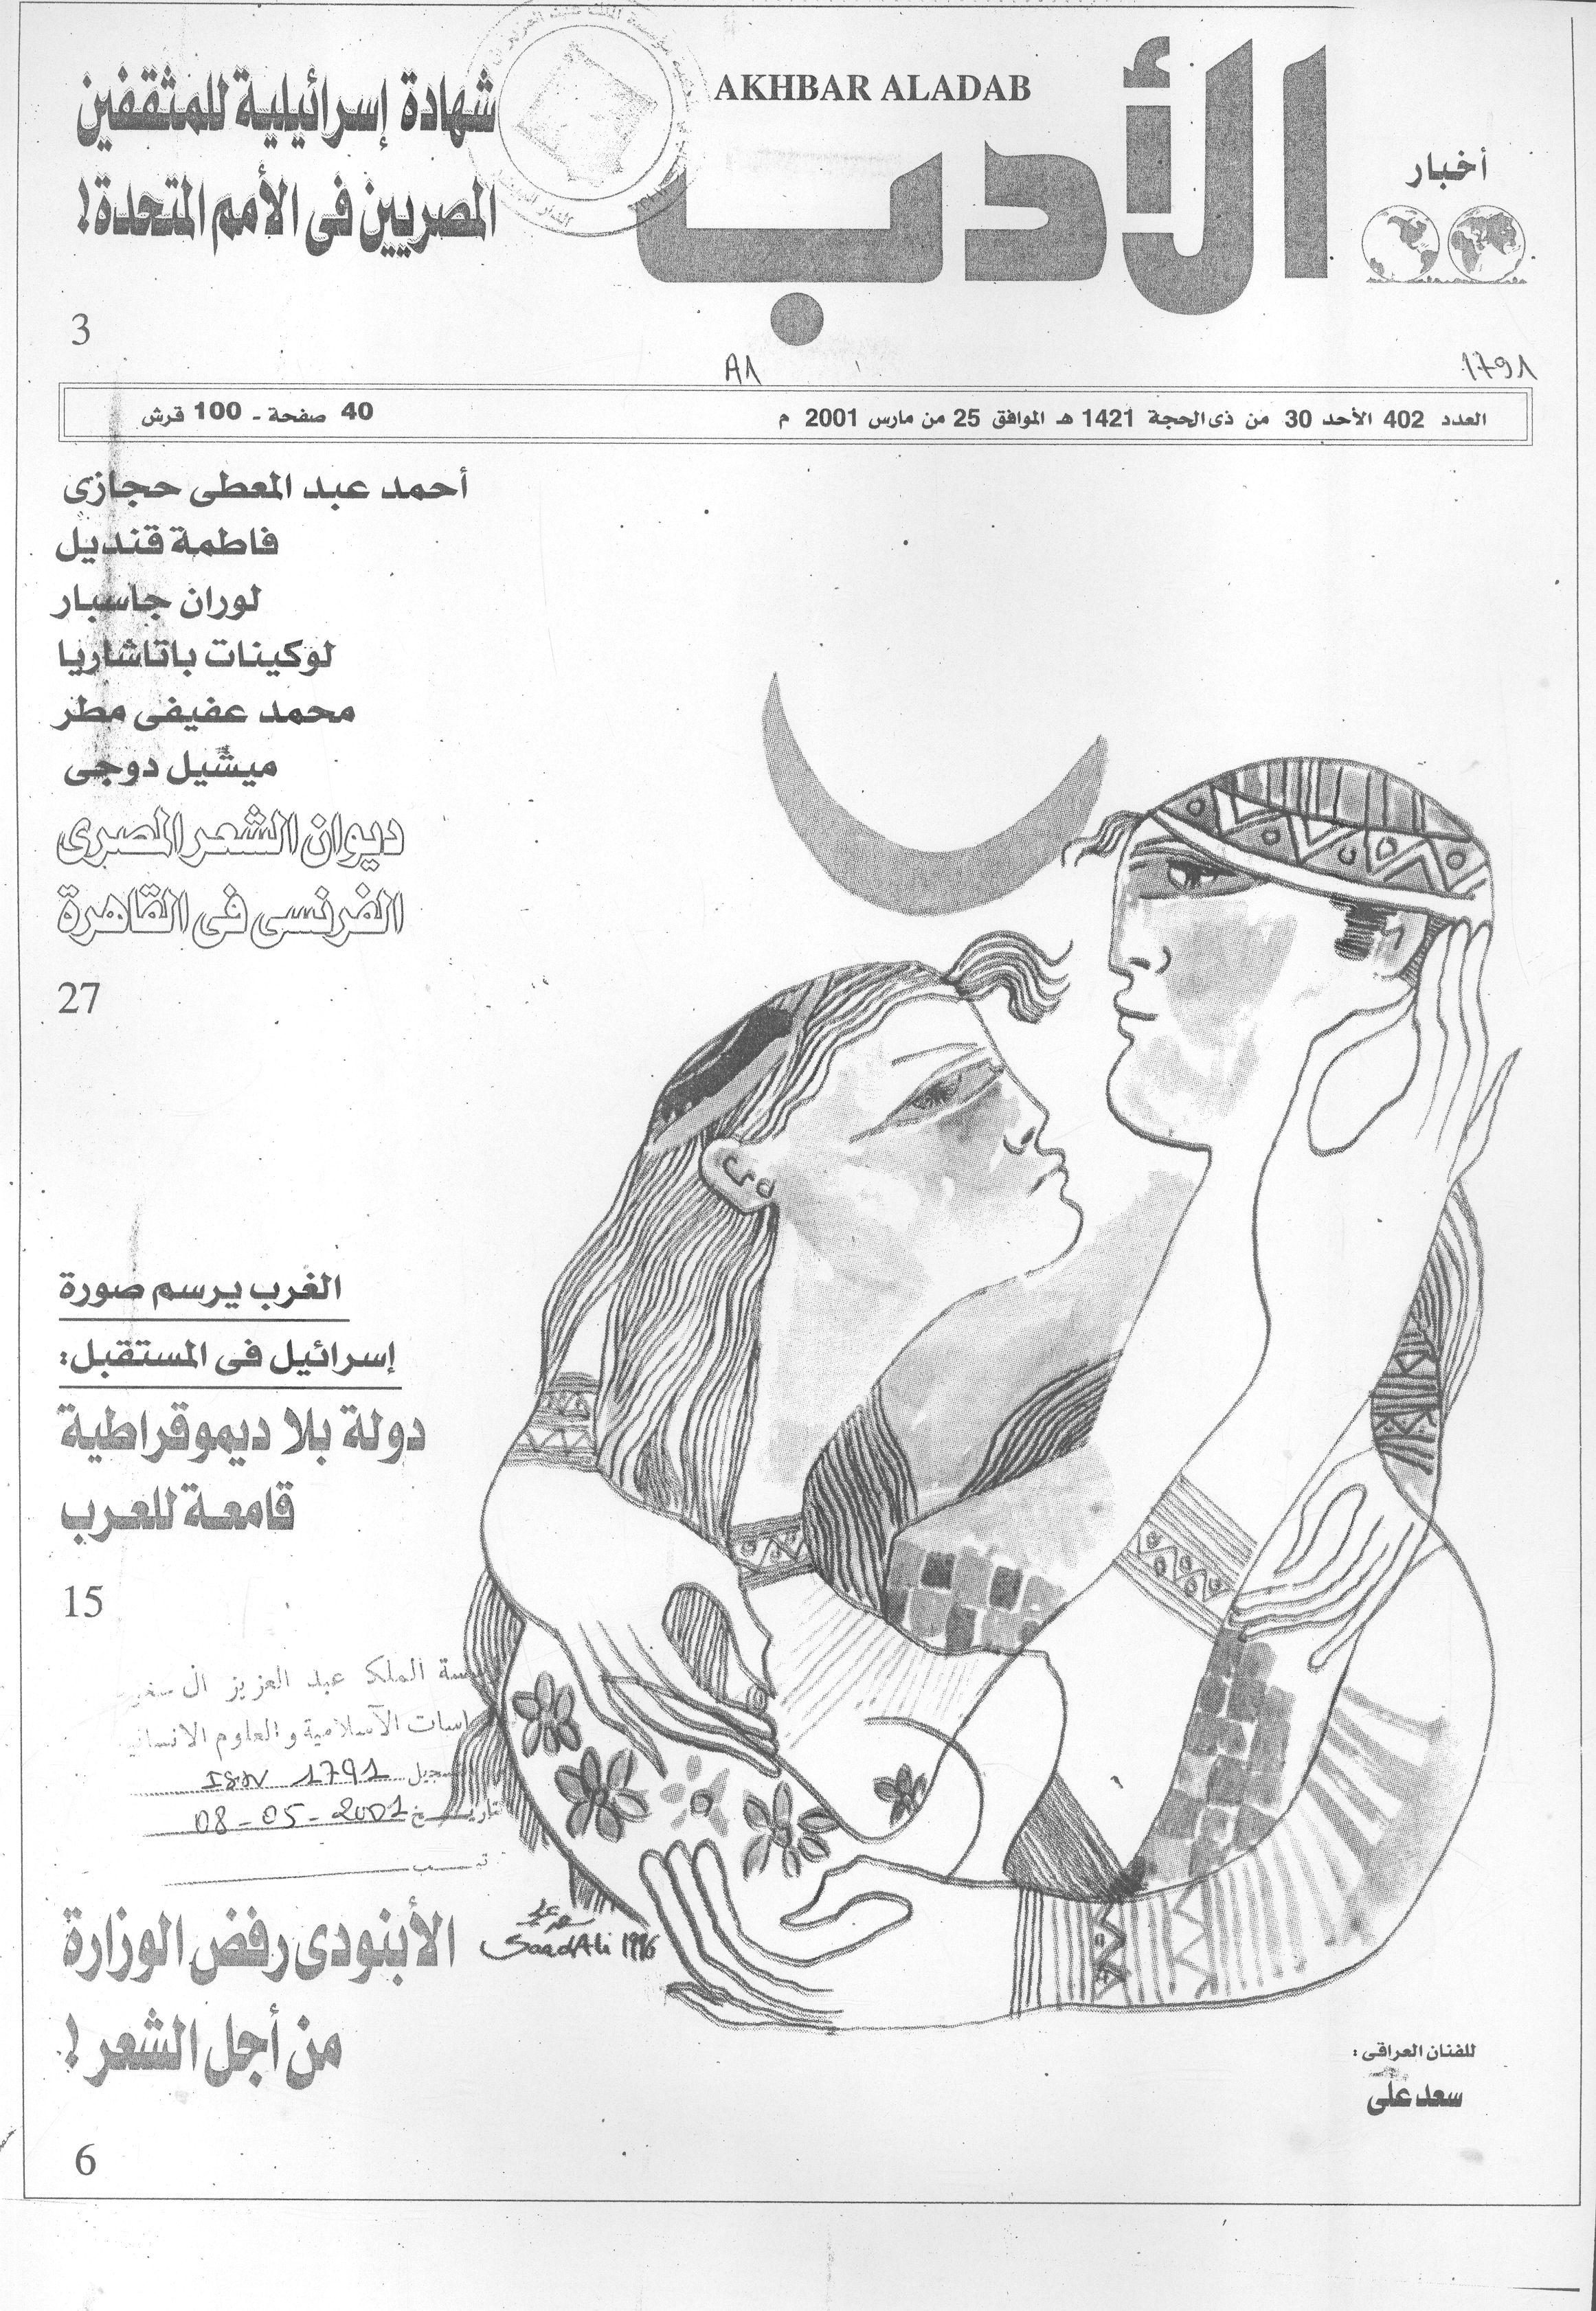 أخبار
الأدب
AKHBAR ALADAB
شهادة إسرائيلية للمثقفين
المصريين فى الأمم المتحدة!
3
A1
1791
العدد 402 الأحد 30 من ذى الحجة 1421 هـ الموافق 25 من مارس 2001 م
40 صفحة - 100 قرش
أحمد عبد المعطى حجازى
فاطمة قنديل
لوران جاسبار
لوكينات باتاشاريا
محمد عفيفى مطر
ميشيل دوجى
ديوان الشعر المصرى
الفرنسى فى القاهرة
27
الغرب يرسم صورة
إسرائيل فى المستقبل:
دولة بلا ديموقراطية
قامعة للعرب
15
الملك عبد العزيز آل
الاسلامية والعلوم
1791
08-05-2001
الأبنودى رفض الوزارة
من أجل الشعر!
6
سعد علي
SaadAli 1996
للفنان العراقى:
سعد على